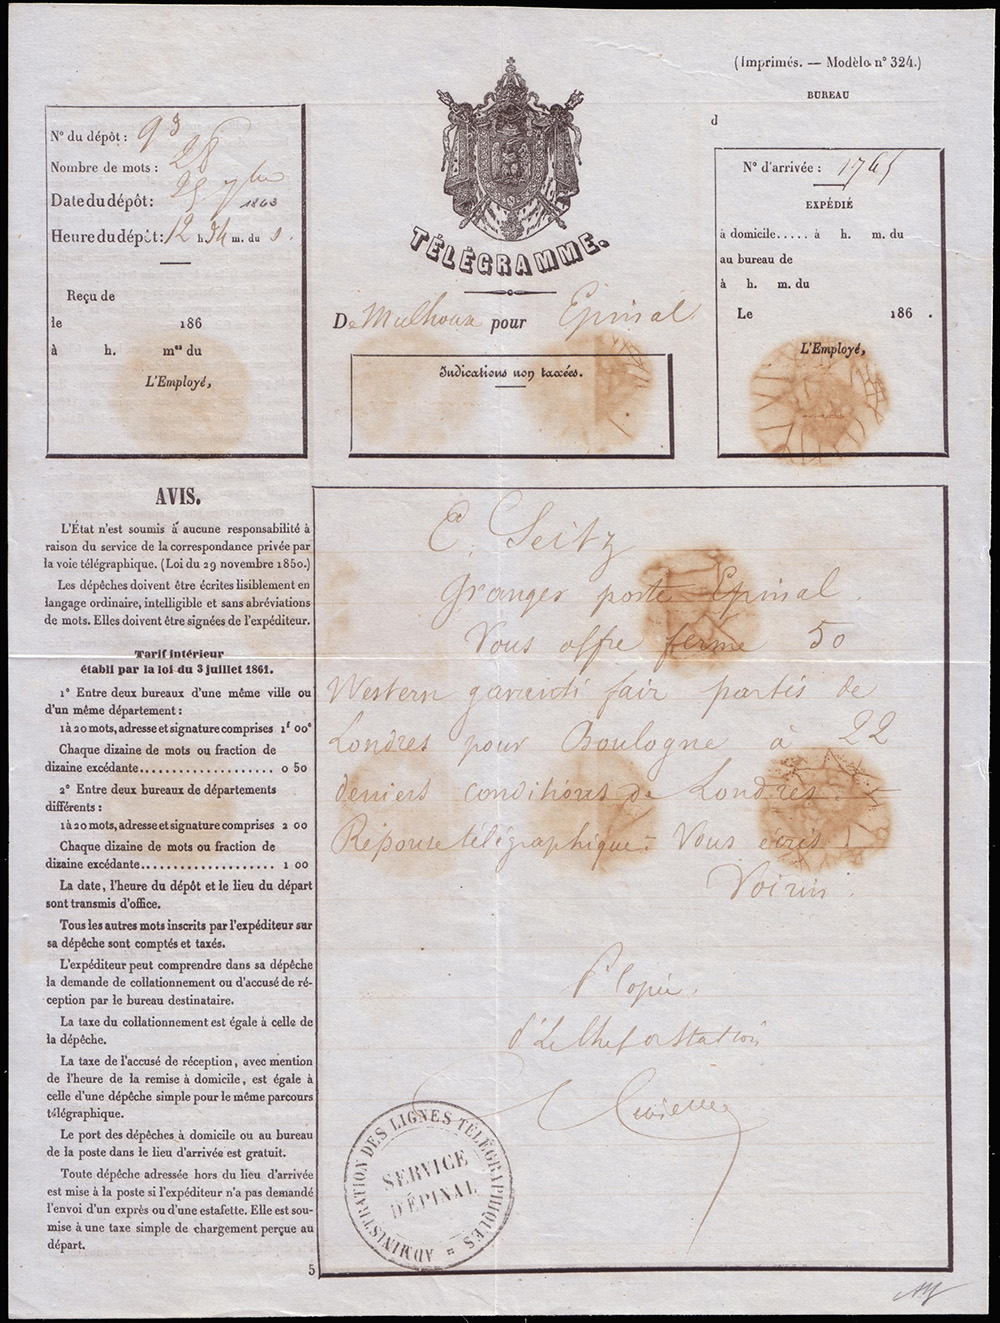 (Imprimés. — Modèle n° 324.)
N° du dépôt : 93
Nombre de mots : 28
Date du dépôt : 25 7bre 1863
Heure du dépôt : 12 h 54 m. du s.
Reçu de
le 186
à h. mes du
L'Employé,
TÉLÉGRAMME.
De Mulhouse pour Epinal
Indications non taxées.
BUREAU
d
N° d'arrivée : 1765
EXPÉDIÉ
à domicile..... à h. m. du
au bureau de
à h. m. du
Le 186 .
L'Employé,
AVIS.
L'État n'est soumis à aucune responsabilité à
raison du service de la correspondance privée par
la voie télégraphique. (Loi du 29 novembre 1850.)
Les dépêches doivent être écrites lisiblement en
langage ordinaire, intelligible et sans abréviations
de mots. Elles doivent être signées de l'expéditeur.
Tarif intérieur
établi par la loi du 3 juillet 1861.
1° Entre deux bureaux d'une même ville ou
d'un même département :
1 à 20 mots, adresse et signature comprises 1f 00c
Chaque dizaine de mots ou fraction de
dizaine excédante.................... 0 50
2° Entre deux bureaux de départements
différents :
1 à 20 mots, adresse et signature comprises 2 00
Chaque dizaine de mots ou fraction de
dizaine excédante.................... 1 00
La date, l'heure du dépôt et le lieu du départ
sont transmis d'office.
Tous les autres mots inscrits par l'expéditeur sur
sa dépêche sont comptés et taxés.
L'expéditeur peut comprendre dans sa dépêche
la demande de collationnement ou d'accusé de ré-
ception par le bureau destinataire.
La taxe du collationnement est égale à celle de
la dépêche.
La taxe de l'accusé de réception, avec mention
de l'heure de la remise à domicile, est égale à
celle d'une dépêche simple pour le même parcours
télégraphique.
Le port des dépêches à domicile ou au bureau
de la poste dans le lieu d'arrivée est gratuit.
Toute dépêche adressée hors du lieu d'arrivée
est mise à la poste si l'expéditeur n'a pas demandé
l'envoi d'un exprès ou d'une estafette. Elle est sou-
mise à une taxe simple de chargement perçue au
départ.
5
E. Seitz
Granges poste Epinal.
Vous offre ferme 50
Western garanti fair partis de
Londres pour Boulogne à 22
deniers conditions de Londres.
Réponse télégraphique. Vous écris.
Voirin.
Pr Copie.
Pr Le Chef de Station
ADMINISTRATION DES LIGNES TÉLÉGRAPHIQUES
SERVICE
D'ÉPINAL